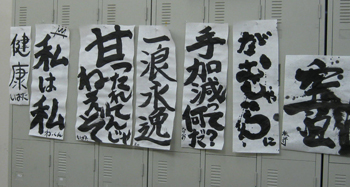 健康
私は私
甘ったれてんじゃ
ねえぞ
一浪永逸
手加減って?
何だ?
がむしゃらに